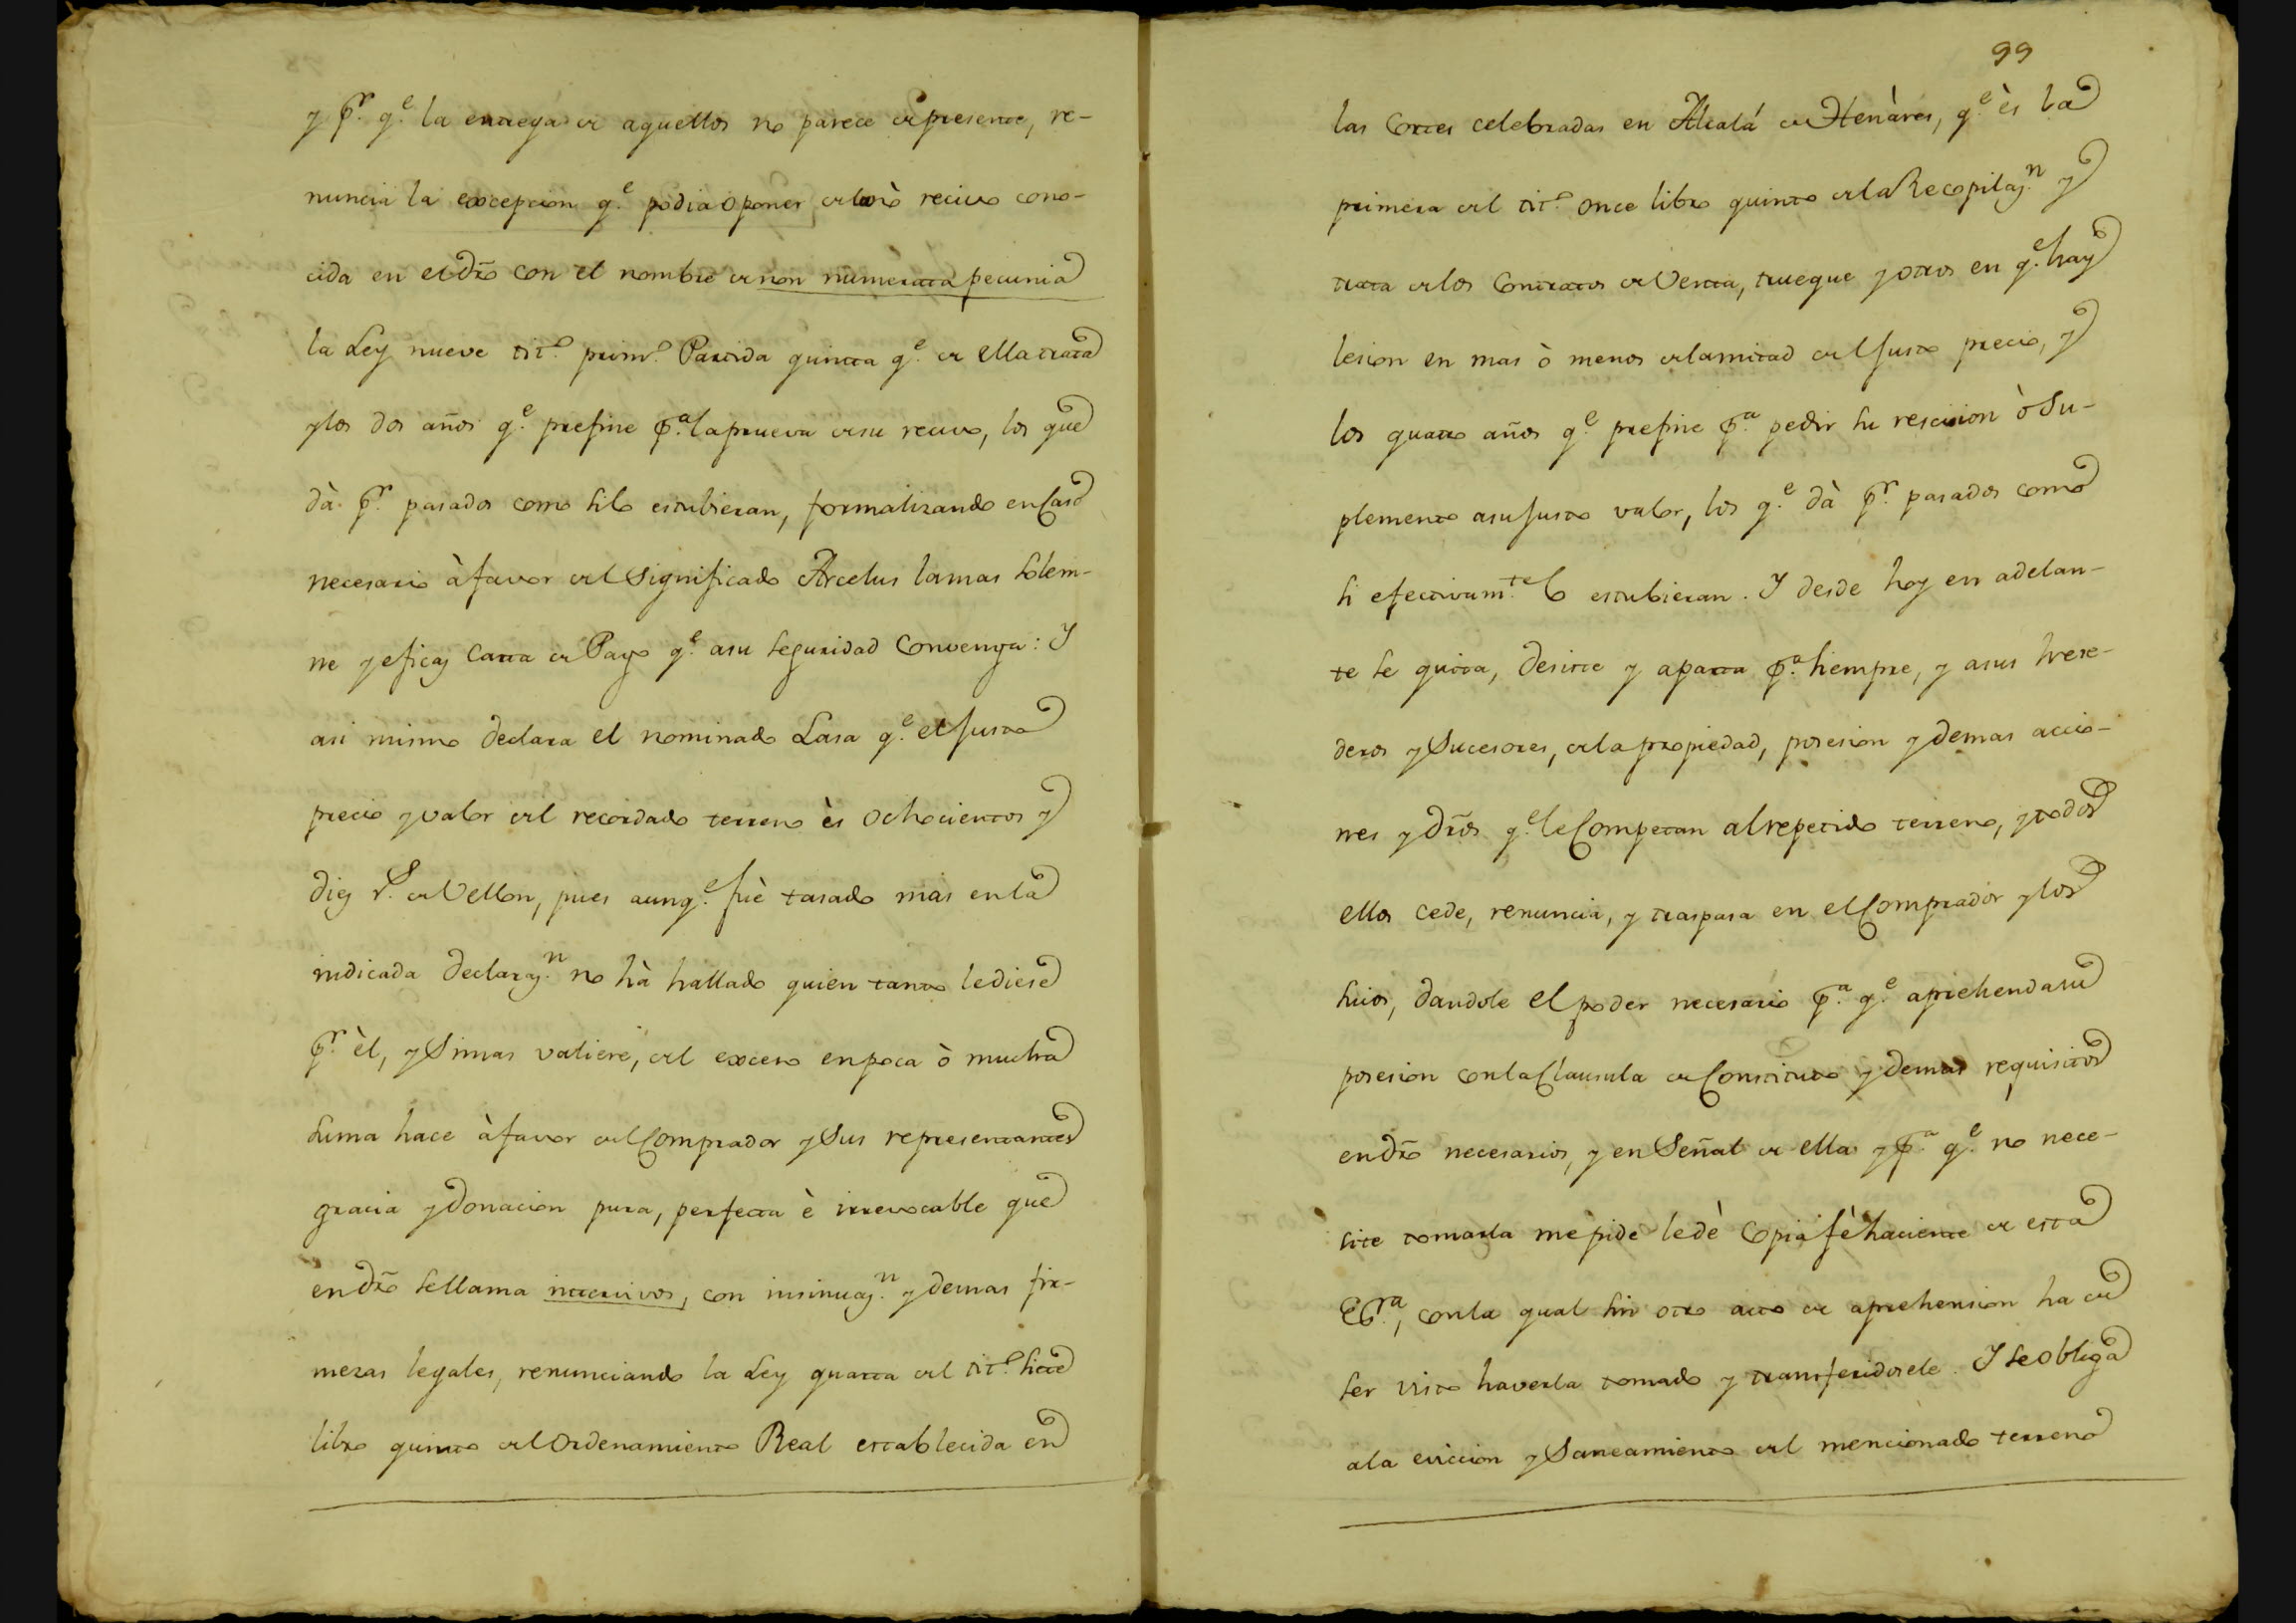 y p.r q.e la entrega de aquellos no parece de presente, re-
nuncia la excepcion q.e podia oponer de la no recivo cono-
cida en el dro con el nombre de non numerata pecunia
la Ley nueve tit.o prim.o Partida quinta q.e de ella trata
y los dos años q.e prefine p.a la prueva de su recivo, los que
dà p.r pasados como si lo estubieran, formalizando en Caso
necesario à favor del Significado Arcelus la mas solem-
ne y eficaz Carta de Pago q.e a su seguridad Convenga: Y
asi mismo declara el nominado Lasa q.e el justo
precio y valor del recordado terreno ès Ochocientos y
diez r.s de Vellon, pues aunq.e fuè tasado màs en la
indicada declaraz.n no hà hallado quien tanto le diese
p.r èl, y Si mas valiere, del exceso en poca ò mucha
suma hace à favor del Comprador y Sus representantes
gracia y donacion pura, perfecta è irrevocable que
en dro se llama intervivos, con insinuaz.n y demas fir-
mezas legales, renunciando la Ley quarta del tit.o siete
libro quinto del Ordenamiento Real establecida en
99
las Cortes celebradas en Alcalá de Henàres, q.e ès la
primera del tit.o once libro quinto de la Recopilaz.n y
trata de los Contratos de Venta, trueque y otros en q.e hay
lesion en mas ò menos de la mitad del justo precio, y
los quatro años q.e prefine p.a pedir su rescision ò Su-
plemento a su justo valor, los q.e dà p.r pasados como
si efectivam.te lo estubieran. Y desde hoy en adelan-
te se quita, desiste y aparta p.a siempre, y a sus here-
deros y Sucesores, de la propiedad, posesion y demas accio-
nes y dros q.e le Competan al repetido terreno, y todos
ellos cede, renuncia, y traspasa en el Comprador y los
suios, dandole el poder necesario p.a q.e aprehenda su
posesion con la Clausula de Constituto y demas requisitos
en dro necesarios, y en Señal de ella y p.a q.e no nece-
site tomarla me pide le dè Copia fèhaciente de esta
Es.ra, con la qual sin otro acto de aprehension ha de
ser visto haverla tomado y transferidosele. Y se obliga
a la eviccion y Saneamiento del mencionado terreno